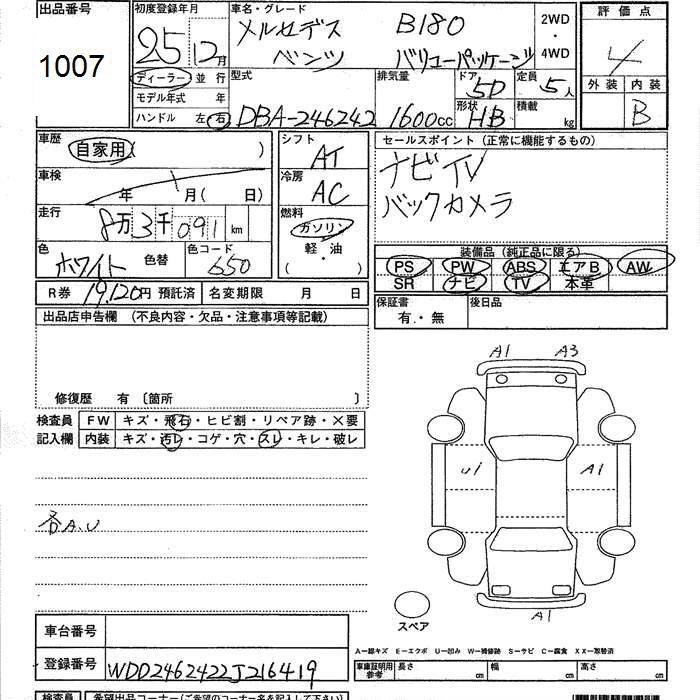 出品番号
1007
初度登録年月
25 12月
ディーラー 並行
モデル年式 年
ハンドル 左・右
車名・グレード
メルセデス B180
ベンツ バリューパッケージ
2WD
・
4WD
型式
DBA-246242
排気量
1600cc
ドア
5D
形状
HB
定員
5人
積載
kg
評価点
4
外装 内装
B
車歴
自家用( )
車検
年 月( 日)
走行
8万3千091km
色
ホワイト
色替
色コード
650
シフト
AT
冷房
AC
燃料
ガソリン
軽・油
( ・ )
セールスポイント (正常に機能するもの)
ナビTV
バックカメラ
装備品(純正品に限る)
PS PW ABS エアB AW
SR ナビ TV 本革
R券 19,120円 預託済
名変期限 月 日
保証書
有・無
後日品
出品店申告欄 (不良内容・欠品・注意事項等記載)
修復歴 有〔箇所 〕
検査員
記入欄
FW キズ・飛石・ヒビ割・リペア跡・X要
内装 キズ・汚レ・コゲ・穴・スレ・キレ・破レ
各A.U
A1 A3
U1 A1
A1
スペア
A-線キズ E-エクボ U-凹み W-補修跡 S-サビ C-腐食 XX-取替済
車台番号
登録番号
WDD2462422J216419
車庫証明用
参考
長さ cm 幅 cm 高さ cm
検査員 希望出品コーナー(ご希望のコーナー名を